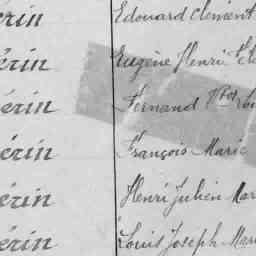 érin Edouard Clément
érin Eugène Henri
érin Fernand Vtor
érin François Marie
érin Henri Julien Mar
érin Louis Joseph Mari